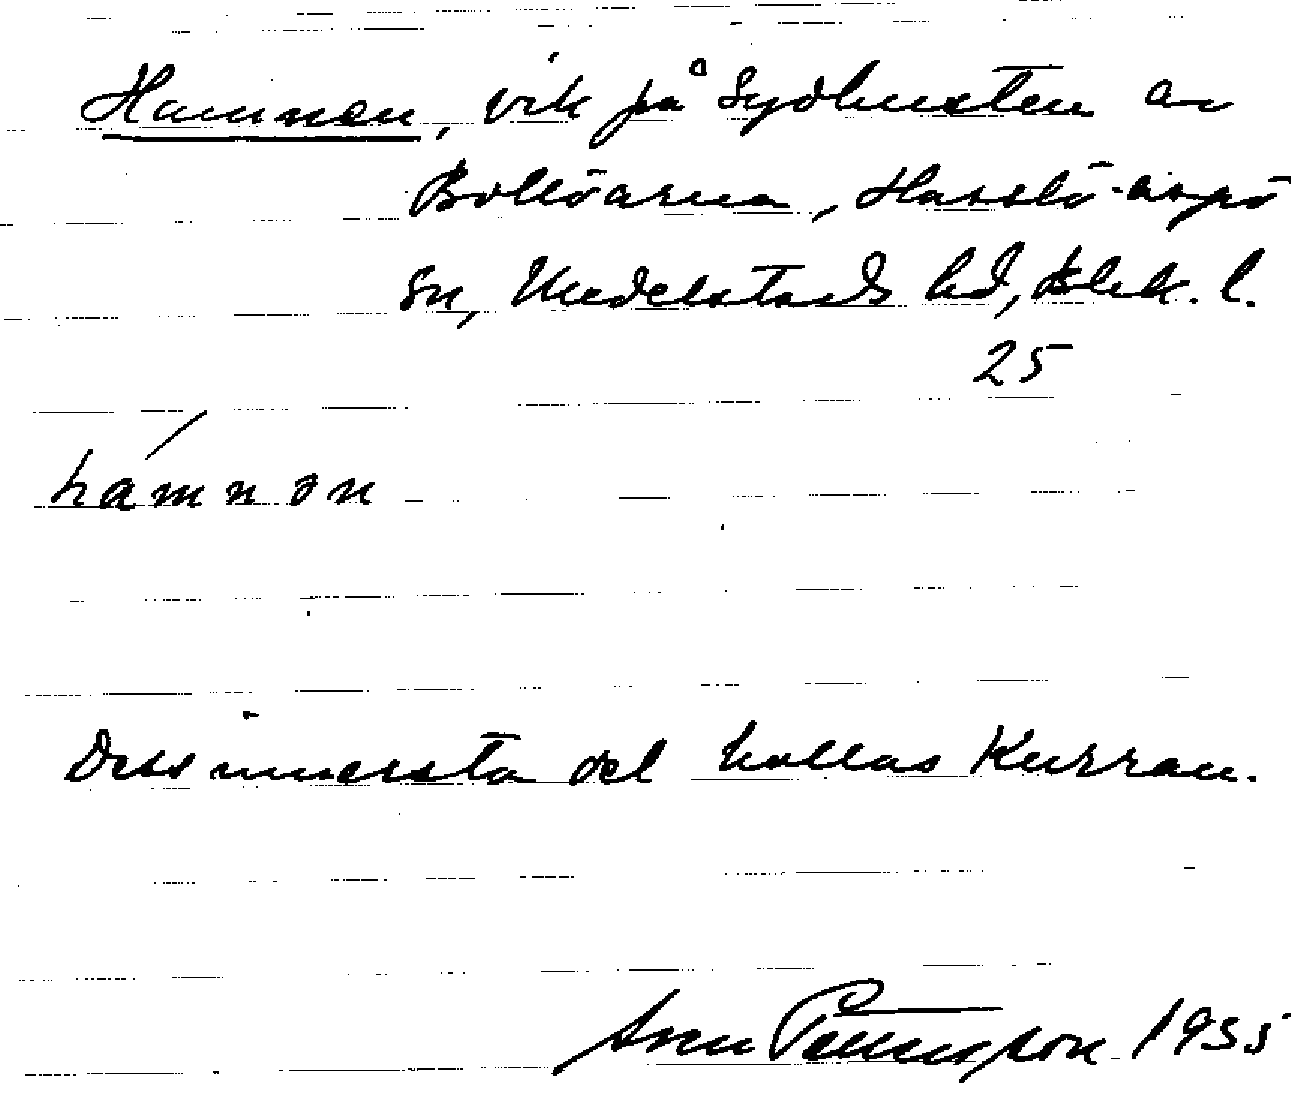 Hamnen, vik på Sydkusten av
Bollöarna, Hasslö-aspö
sn, Medelstads hd, Blek. l.
25
hámnən
Dess innersta del kallas Kurran.
Sven Pettersson 1935